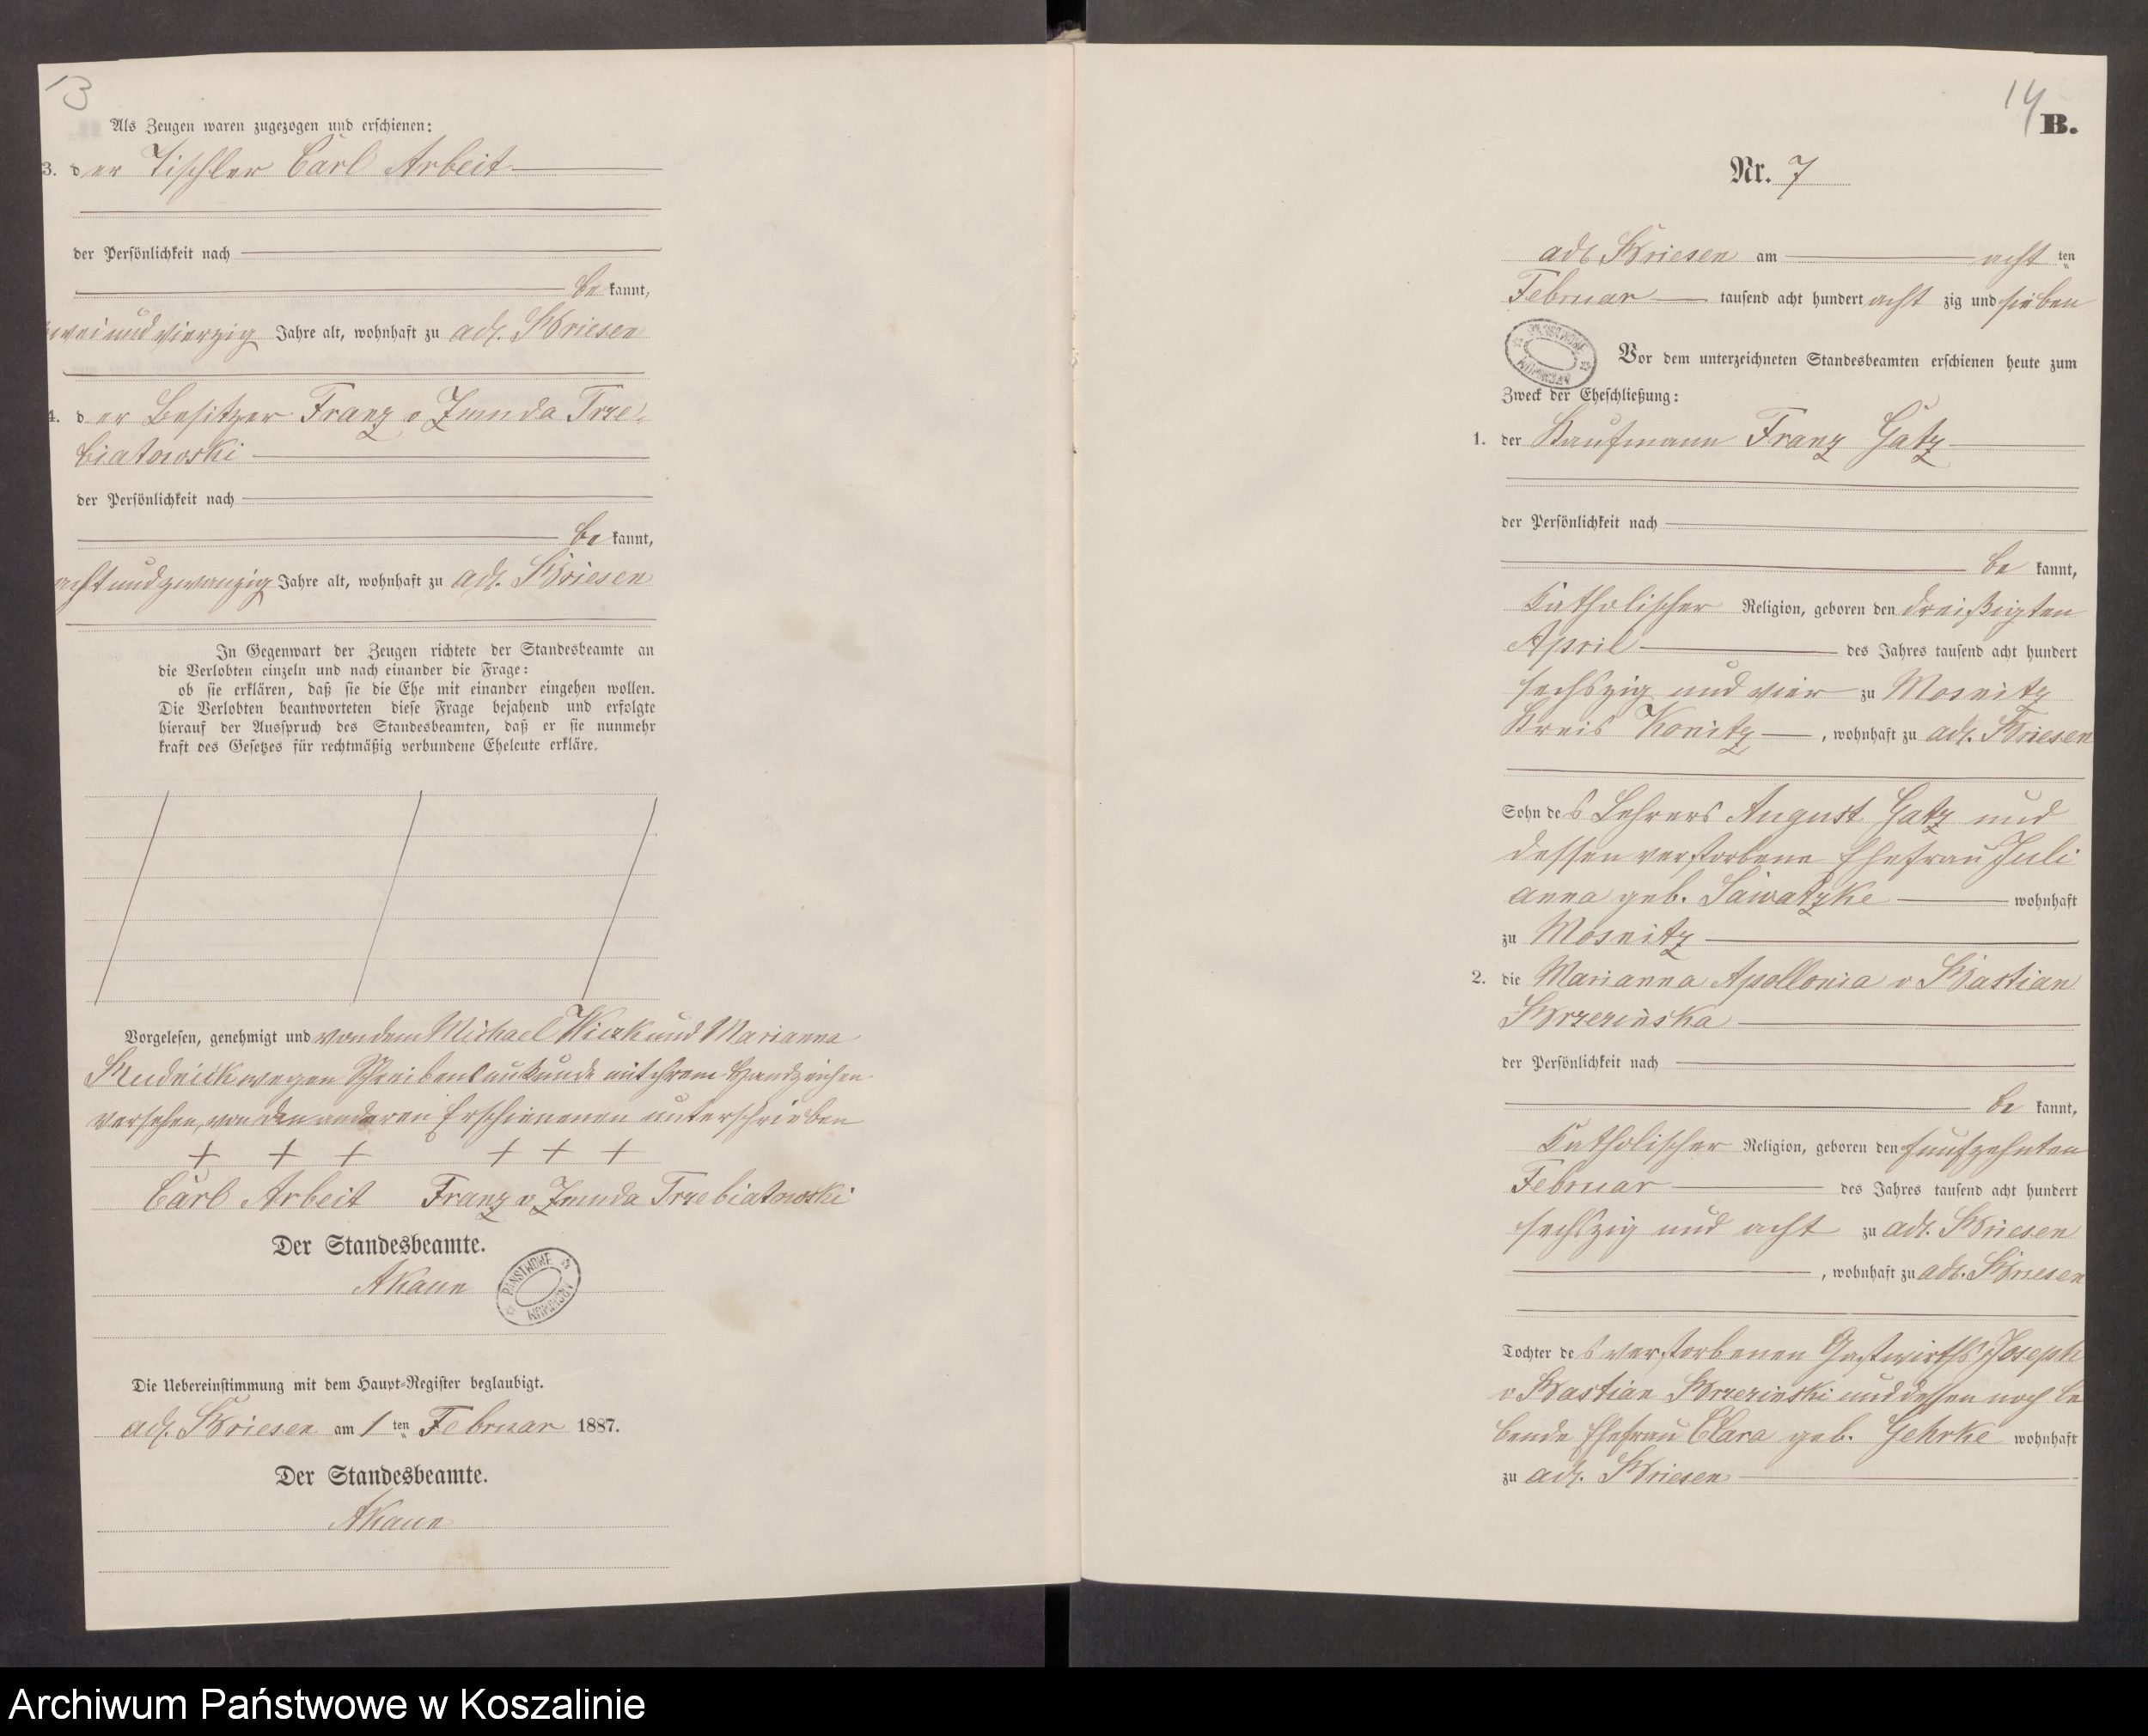 13
Als Zeugen waren zugezogen und erschienen:
3. der Tischler Carl Arbeit
der Persönlichkeit nach
be kannt,
zweiundvierzig Jahre alt, wohnhaft zu adl. Briesen
4. der Besitzer Franz v Zmuda Trze-
biatowski
der Persönlichkeit nach
be kannt,
achtundzwanzig Jahre alt, wohnhaft zu adl. Briesen
In Gegenwart der Zeugen richtete der Standesbeamte an
die Verlobten einzeln und nach einander die Frage:
ob sie erklären, daß sie die Ehe mit einander eingehen wollen.
Die Verlobten beantworteten diese Frage bejahend und erfolgte
hierauf der Ausspruch des Standesbeamten, daß er sie nunmehr
kraft des Gesetzes für rechtmäßig verbundene Eheleute erkläre.
Vorgelesen, genehmigt und von dem Michael Wirk und Marianna
Rudnick wegen Schreibensunkunde mit ihrem Handzeichen
versehen, von den anderen Erschienenen unterschrieben
+ + + + + +
Carl Arbeit Franz v Zmuda Trzebiatowski
Der Standesbeamte.
PAŃSTWOWE ARCHIWUM
Die Uebereinstimmung mit dem Haupt-Register beglaubigt.
adl. Briesen am 1 ten Februar 1887.
Der Standesbeamte.
14
B.
Nr. 7
adl Briesen am acht ten
Februar tausend acht hundert acht zig und sieben
PAŃSTWOWE ARCHIWUM
Vor dem unterzeichneten Standesbeamten erschienen heute zum
Zweck der Eheschließung:
1. der Kaufmann Franz Gatz
der Persönlichkeit nach
be kannt,
katholischer Religion, geboren den dreißigten
April des Jahres tausend acht hundert
sechszig und vier zu Mosnitz
Kreis Konitz, wohnhaft zu adl. Briesen
Sohn des Lehrers August Gatz und
dessen verstorbene Ehefrau Juli
anna geb. Sawatzke wohnhaft
zu Mosnitz
2. die Marianna Apollonia v Bastian
Brzezinska
der Persönlichkeit nach
be kannt,
katholischer Religion, geboren den funfzehnten
Februar des Jahres tausend acht hundert
sechszig und acht zu adl. Briesen
, wohnhaft zu adl. Briesen
Tochter des verstorbenen Gastwirths Joseph
v Bastian Brzezinski und dessen noch le
bende Ehefrau Clara geb. Gehrke wohnhaft
zu adl. Briesen
Archiwum Państwowe w Koszalinie